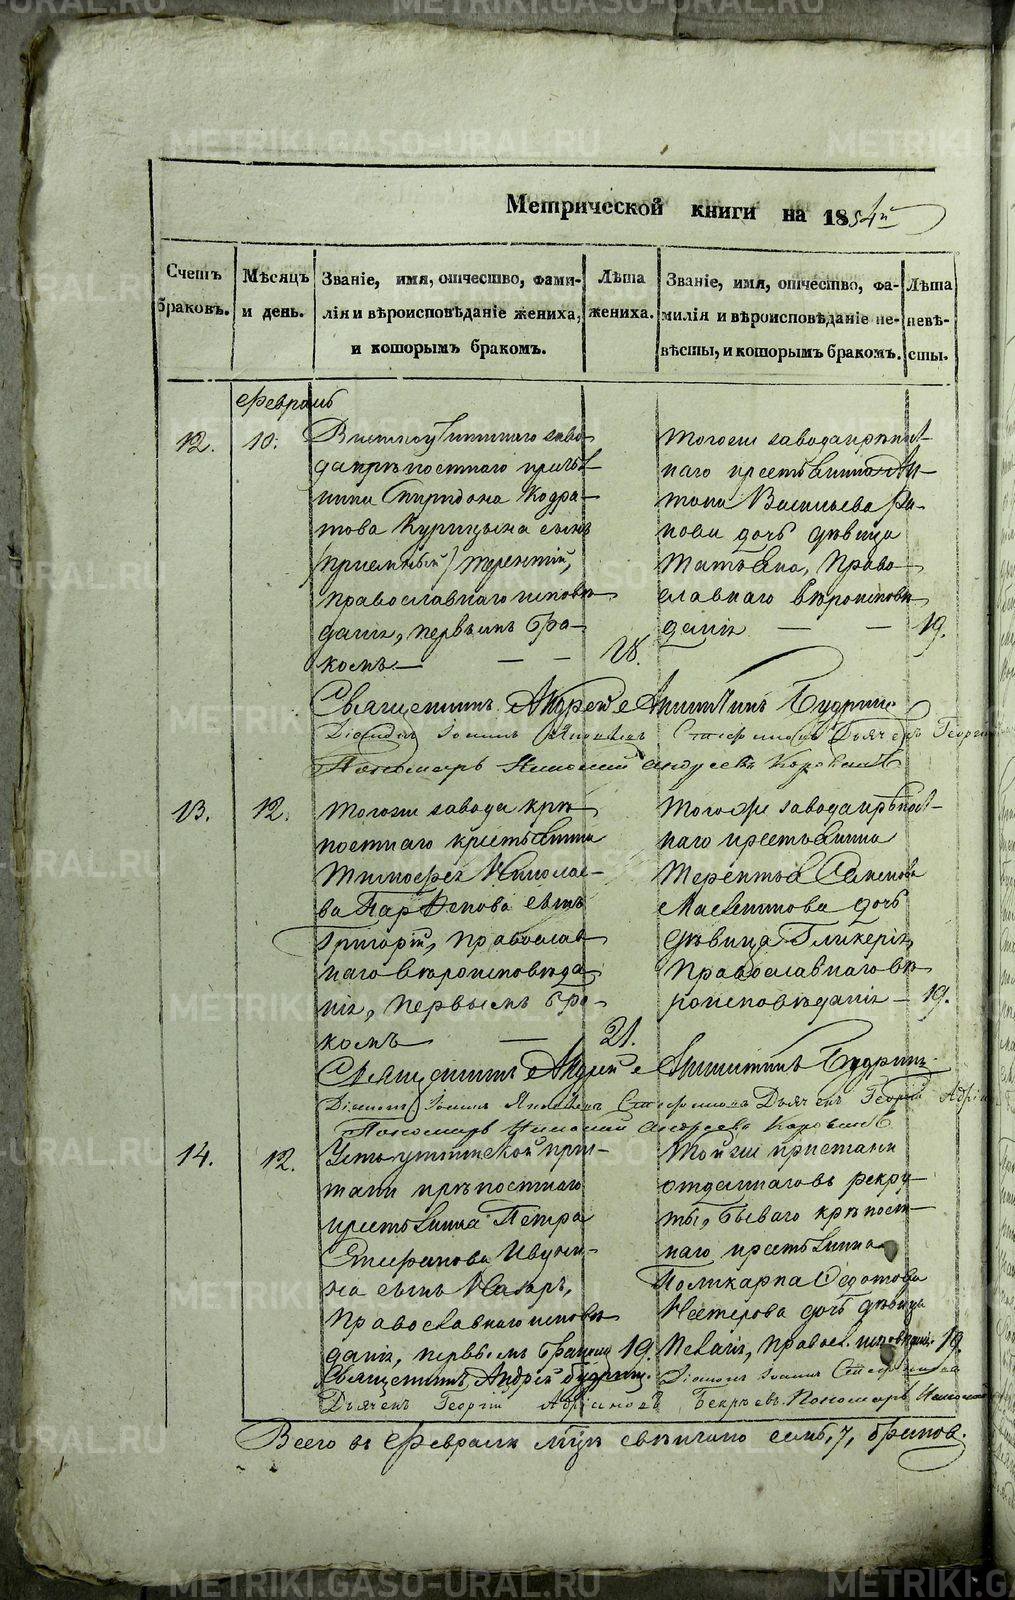 METRIKI.GASO-URAL.RU
Метрической книги на 1854й
Счетъ браковъ.
Мѣсяцъ и день.
Званіе, имя, отчество, фами-
лія и вѣроисповѣданіе жениха,
и которымъ бракомъ.
Лѣта жениха.
Званіе, имя, отчество, фа-
милія и вѣроисповѣданіе не-
вѣсты, и которымъ бракомъ.
Лѣта невѣ-
сты.
Февраль
12.
10.
заво-
да крѣпостнаго крестья
нина Спиридона Кодра-
това Курицына сынъ
(приемный) Терентій,
православнаго исповѣ
данія, первымъ бра-
комъ
Тогоже завода крѣпост-
наго крестьянина Ан-
тона Васильева Ра-
кова дочь дѣвица
Татьяна, Право-
славнаго вѣроисповѣ
данія
19.
Священникъ Андрей Никитинъ Будринъ
Діаконъ Іоаннъ Яковлевъ Дьячекъ Георгій
Пономарь Николай Андреевъ Коровинъ
13.
12.
Тогоже завода крѣ
постнаго крестьянина
Тимофея Николае-
ва Парѳенова сынъ
Григорій, православ
наго вѣроисповѣда
нія, первымъ бра-
комъ
21.
Тогоже завода крѣпост-
наго крестьянина
Терентья Семенова
дочь
дѣвица Гликерія,
Православнаго вѣ
роисповѣданія
19.
Священникъ Андрей Никитинъ Будринъ
Діаконъ Іоаннъ Яковлевъ Дьячекъ Георгій
Пономарь Николай Андреевъ Коровинъ
14.
12.
Усть-уткинской при-
стани крѣпостнаго
крестьянина Петра
Стефанова
сынъ Назаръ,
Православнаго исповѣ
данія, первымъ бракомъ
19.
Тойже пристани
отданнаго въ рекру-
ты, бывшаго крѣпост-
наго крестьянина
Поликарпа Федотова
Нестерова дочь дѣвица
Пелагія, Правосл. исповѣдан.
19.
Священникъ Андрей Будринъ. Діаконъ Іоаннъ
Дьячекъ Георгій Пономарь
Всего въ Февралѣ мцѣ свѣнчано семь, 7, браков.